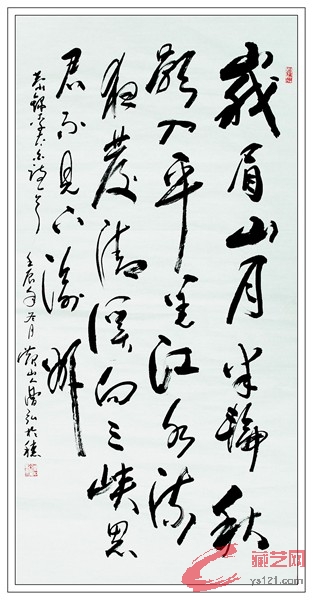 峩眉山月半輪秋
影入平羌江水流
夜發清溪向三峽思
君不見下渝州
錄李太白詩一首 壬辰年 月 山人 弘於穗
藏艺网
ys121.com